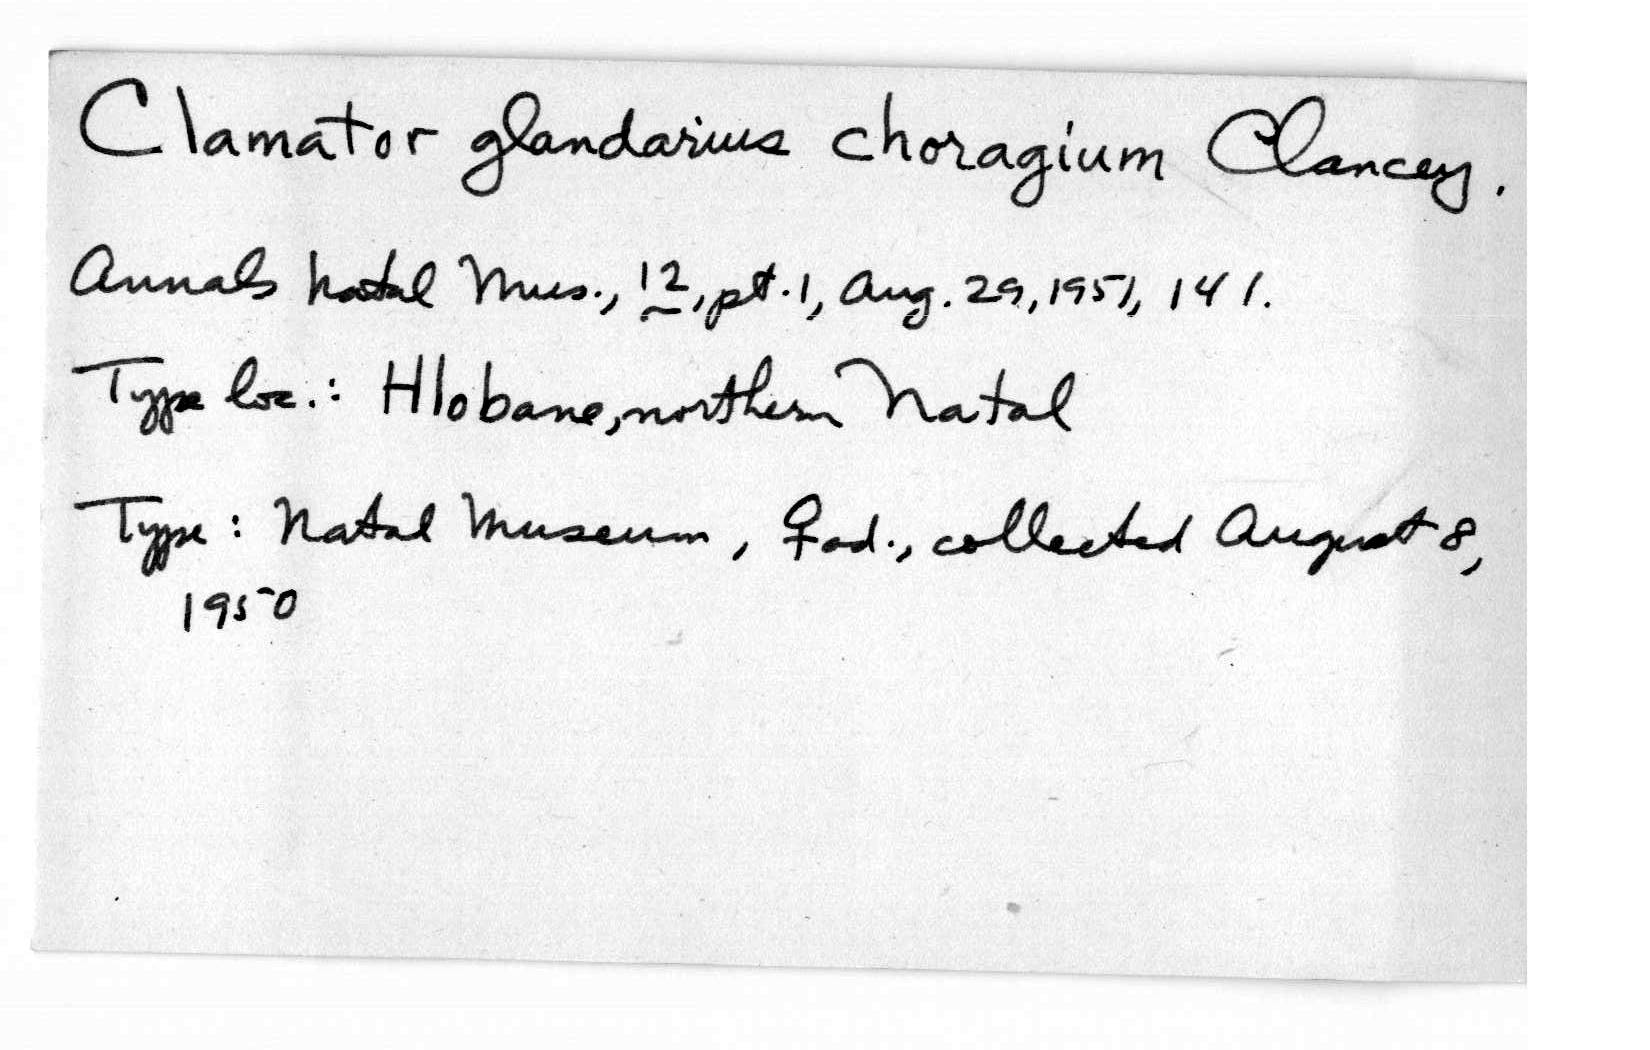 Clamator glandarius choragium Clancey.
Annals Natal Mus., 12, pt. 1, Aug. 29, 1951, 141.
Type loc.: Hlobane, northern Natal
Type: Natal Museum, ♀ ad., collected August 8,
1950